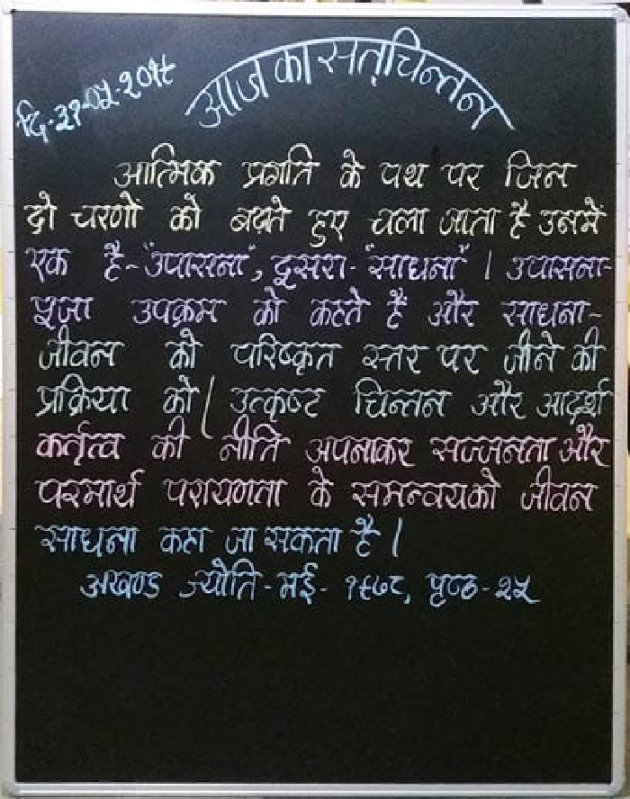 आज का सत्चिन्तन
दि-२१-०५-२०१८
आत्मिक प्रगति के पथ पर जिन
दो चरणों को बढ़ाते हुए चला जाता है उनमें
एक है-"उपासना", दूसरा-"साधना" । उपासना-
पूजा उपक्रम को कहते हैं और साधना-
जीवन को परिष्कृत स्तर पर जीने की
प्रक्रिया को । उत्कृष्ट चिन्तन और आदर्श
कर्तृत्व की नीति अपनाकर सज्जनता और
परमार्थ परायणता के समन्वय को जीवन
साधना कहा जा सकता है ।
अखण्ड ज्योति-मई-१९७८, पृष्ठ-२५